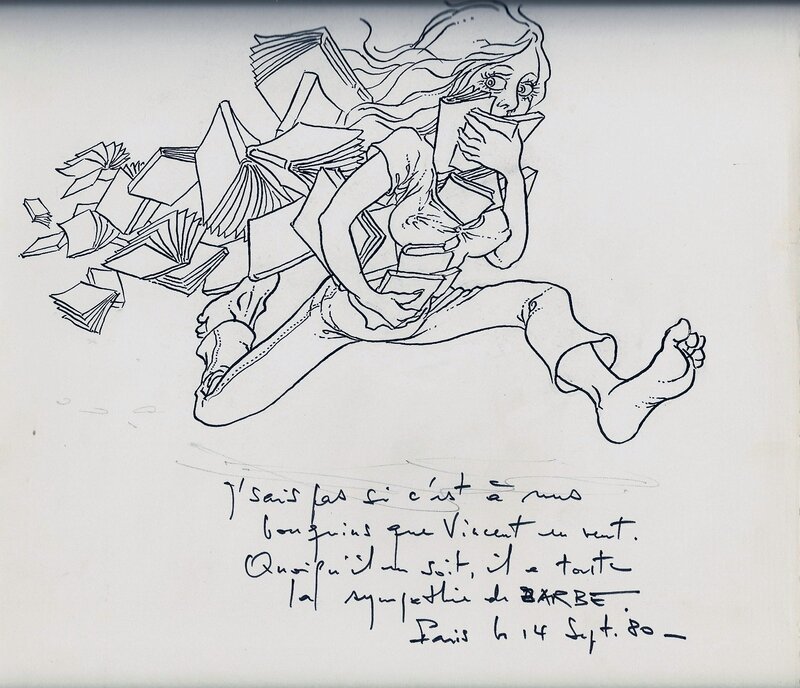 J'sais pas si c'est à mes
bouquins que Vincent en veut.
Quoiqu'il en soit, il a toute
la sympathie de BARBE.
Paris le 14 Sept. 80 –